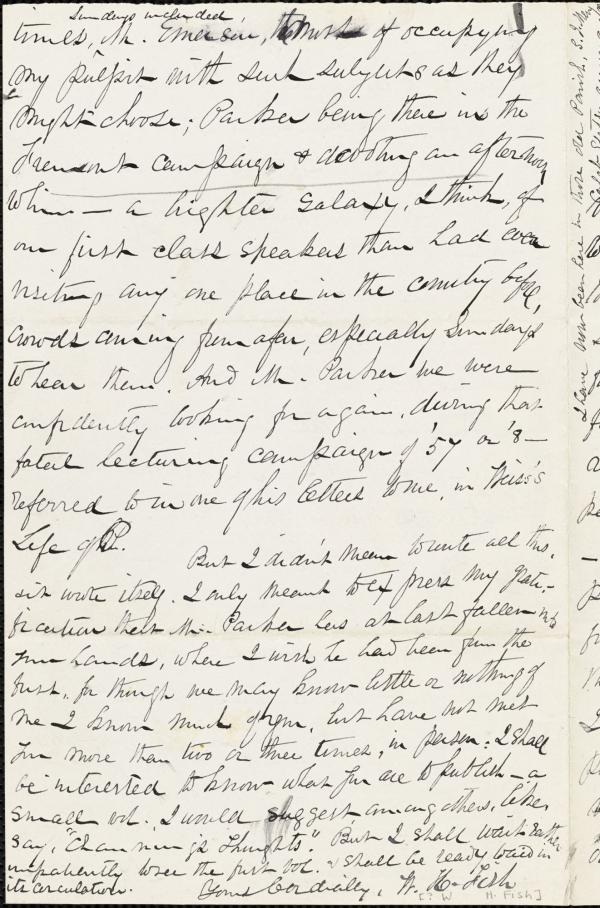 Sundays included,
times, Mr. Emerson, of occupying
my pulpit with such subjects as they
might choose; Parker being there in the
Fremont campaign & devoting an afternoon
to him — a brighter galaxy, I think, of
our first class speakers than had ever
visiting any one place in the country before,
crowds coming from afar, especially Sundays
to hear them. And Mr. Parker we were
confidently looking for again, during that
fatal lecturing campaign of '57 or '8 —
referred to in one of his letters to me, in Weiss's
Life of P.
But I didn't mean to write all this,
it wrote itself. I only meant to express my grati-
fication that Mr. Parker has at last fallen into
your hands, where I wish he had been from the
first, for though we may know little or nothing of
me I know much of you, but have not met
you more than two or three times, in person. I shall
be interested to know what you are to publish — a
small vol. I would suggest among others, like,
say, "Channing's Thoughts". But I shall wait rather
impatiently to see the first vol. & shall be ready to aid in
its circulation.
Yours Cordially, W. H. Fish
[? W H. FISH]
I have now been here in those old Parish,